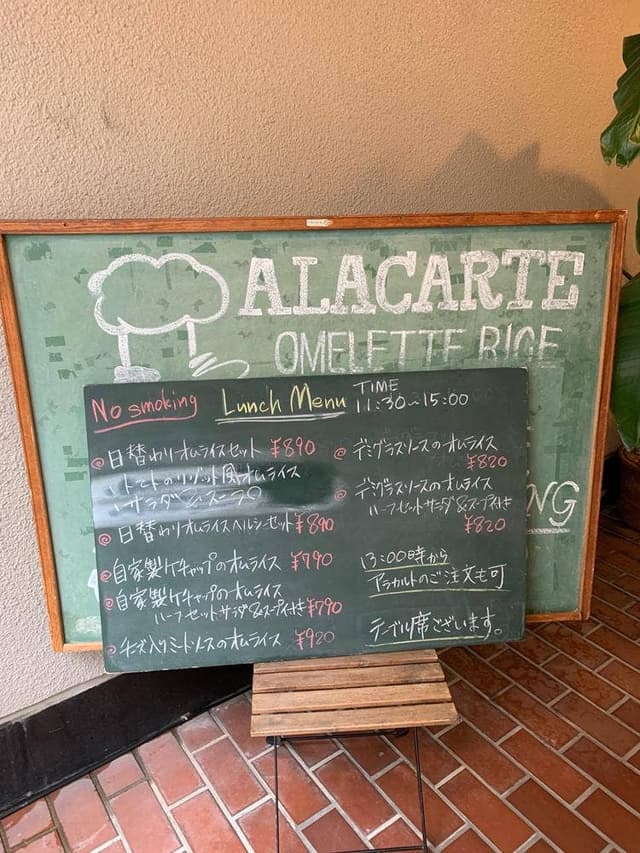 ALACARTE
OMELETTE RICE
No smoking
Lunch Menu
TIME
11:30~15:00
日替わりオムライスセット ¥890
トマトのリゾット風オムライス
サラダ&スープ
日替わりオムライスヘルシーセット ¥890
自家製ケチャップのオムライス ¥790
自家製ケチャップのオムライス
ハーフセットサラダ&スープ付き ¥790
チーズ入りミートソースのオムライス ¥920
デミグラスソースのオムライス
¥820
デミグラスソースのオムライス
ハーフセットサラダ&スープ付き
¥820
13:00時から
アラカルトのご注文も可
テーブル席ございます。
NG